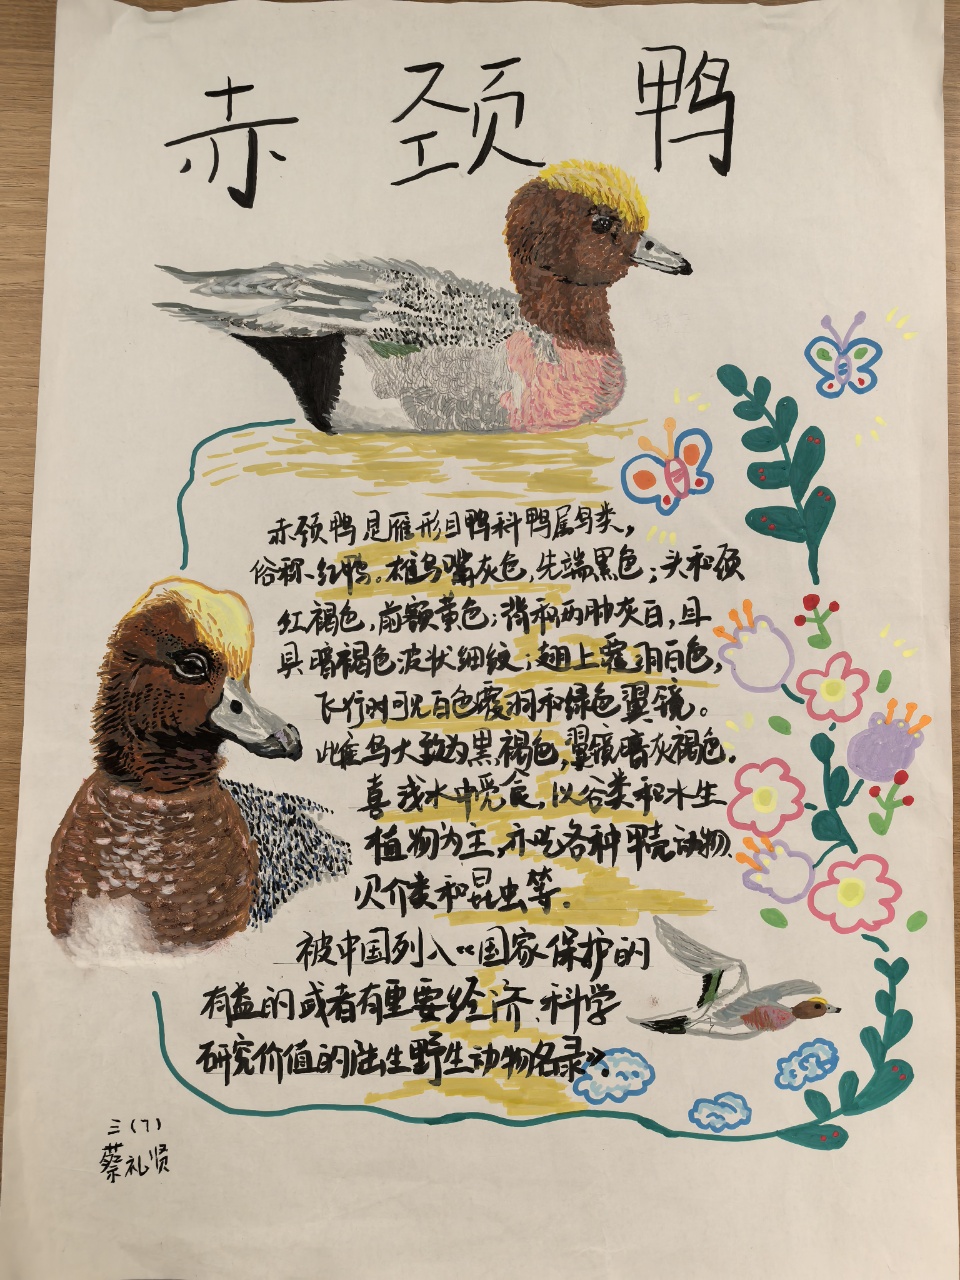 赤颈鸭
赤颈鸭是雁形目鸭科鸭属鸟类，
俗称、红鸭。雄鸟嘴灰色，先端黑色；头和颈
红褐色，前额黄色；背和两肋灰白，且
具暗褐色波状细纹；翅上覆羽白色，
飞行时可见白色覆羽和绿色翼镜。
雌鸟大致为黑褐色，翼镜暗灰褐色。
喜浅水中觅食，以谷类和水生
植物为主，亦吃各种甲壳动物、
贝介类和昆虫等。
被中国列入《国家保护的
有益的或者有重要经济、科学
研究价值的陆生野生动物名录》。
三（7）
蔡礼贤